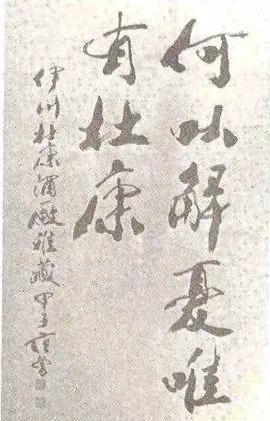 何以解憂唯
有杜康
伊川杜康酒廠雅藏 甲子 書